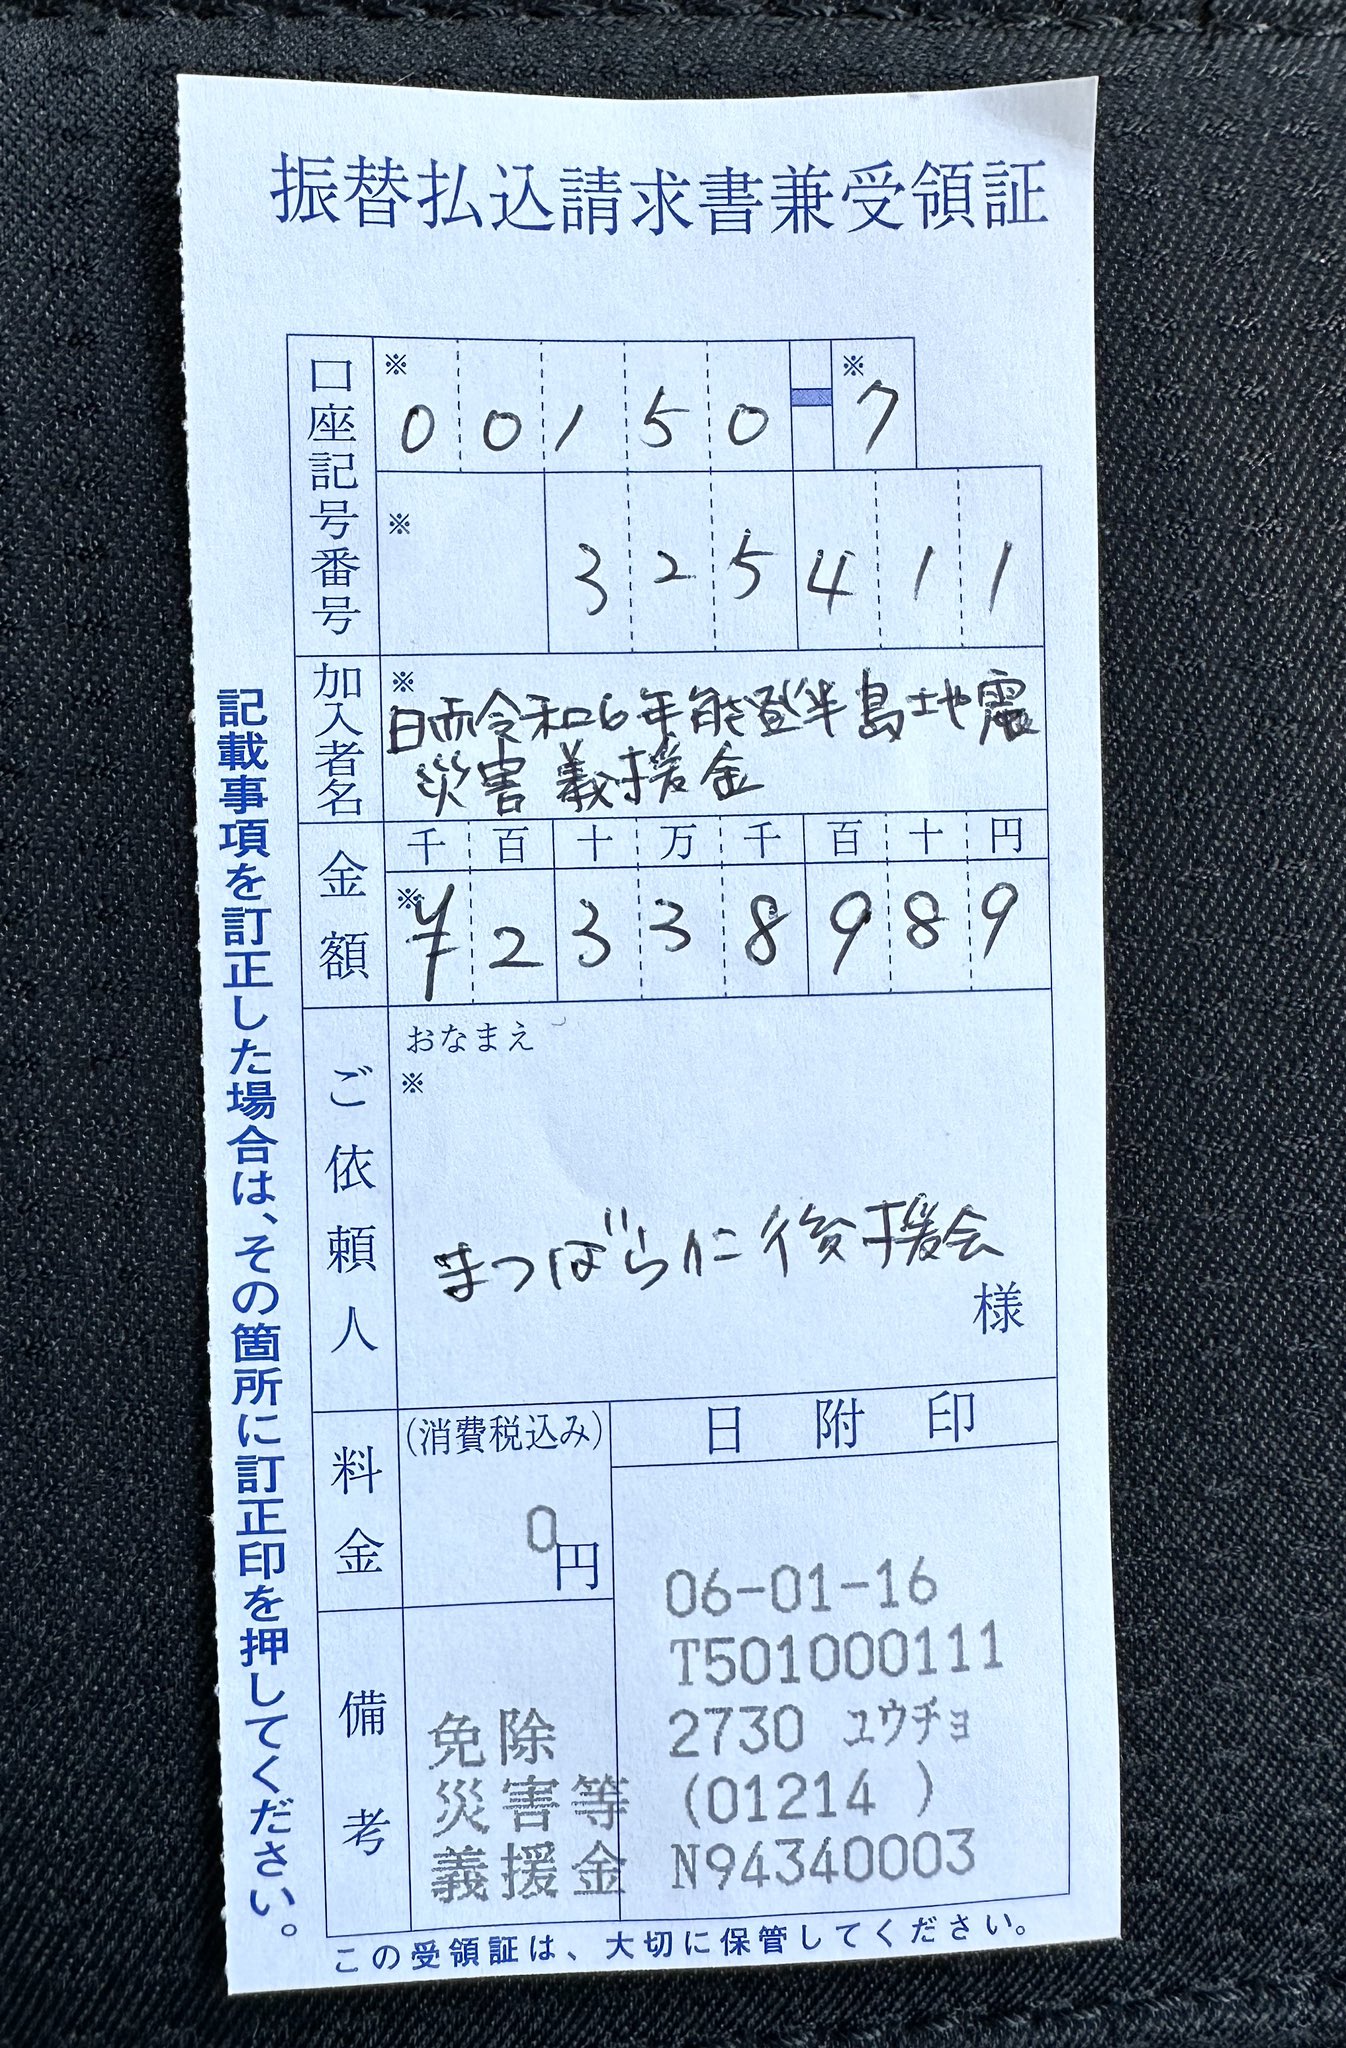 振替払込請求書兼受領証
口座記号番号
※ 00150-7
※ 325411
加入者名
※
日赤令和6年能登半島地震
災害義援金
金額
千百十万千百十円
※ ¥2338989
ご依頼人
おなまえ
※
まつばら仁後援会
様
料金
(消費税込み)
0円
日附印
06-01-16
T501000111
2730 ユウチョ
(01214 )
N94340003
備考
免除
災害等
義援金
この受領証は、大切に保管してください。
記載事項を訂正した場合は、その箇所に訂正印を押してください。